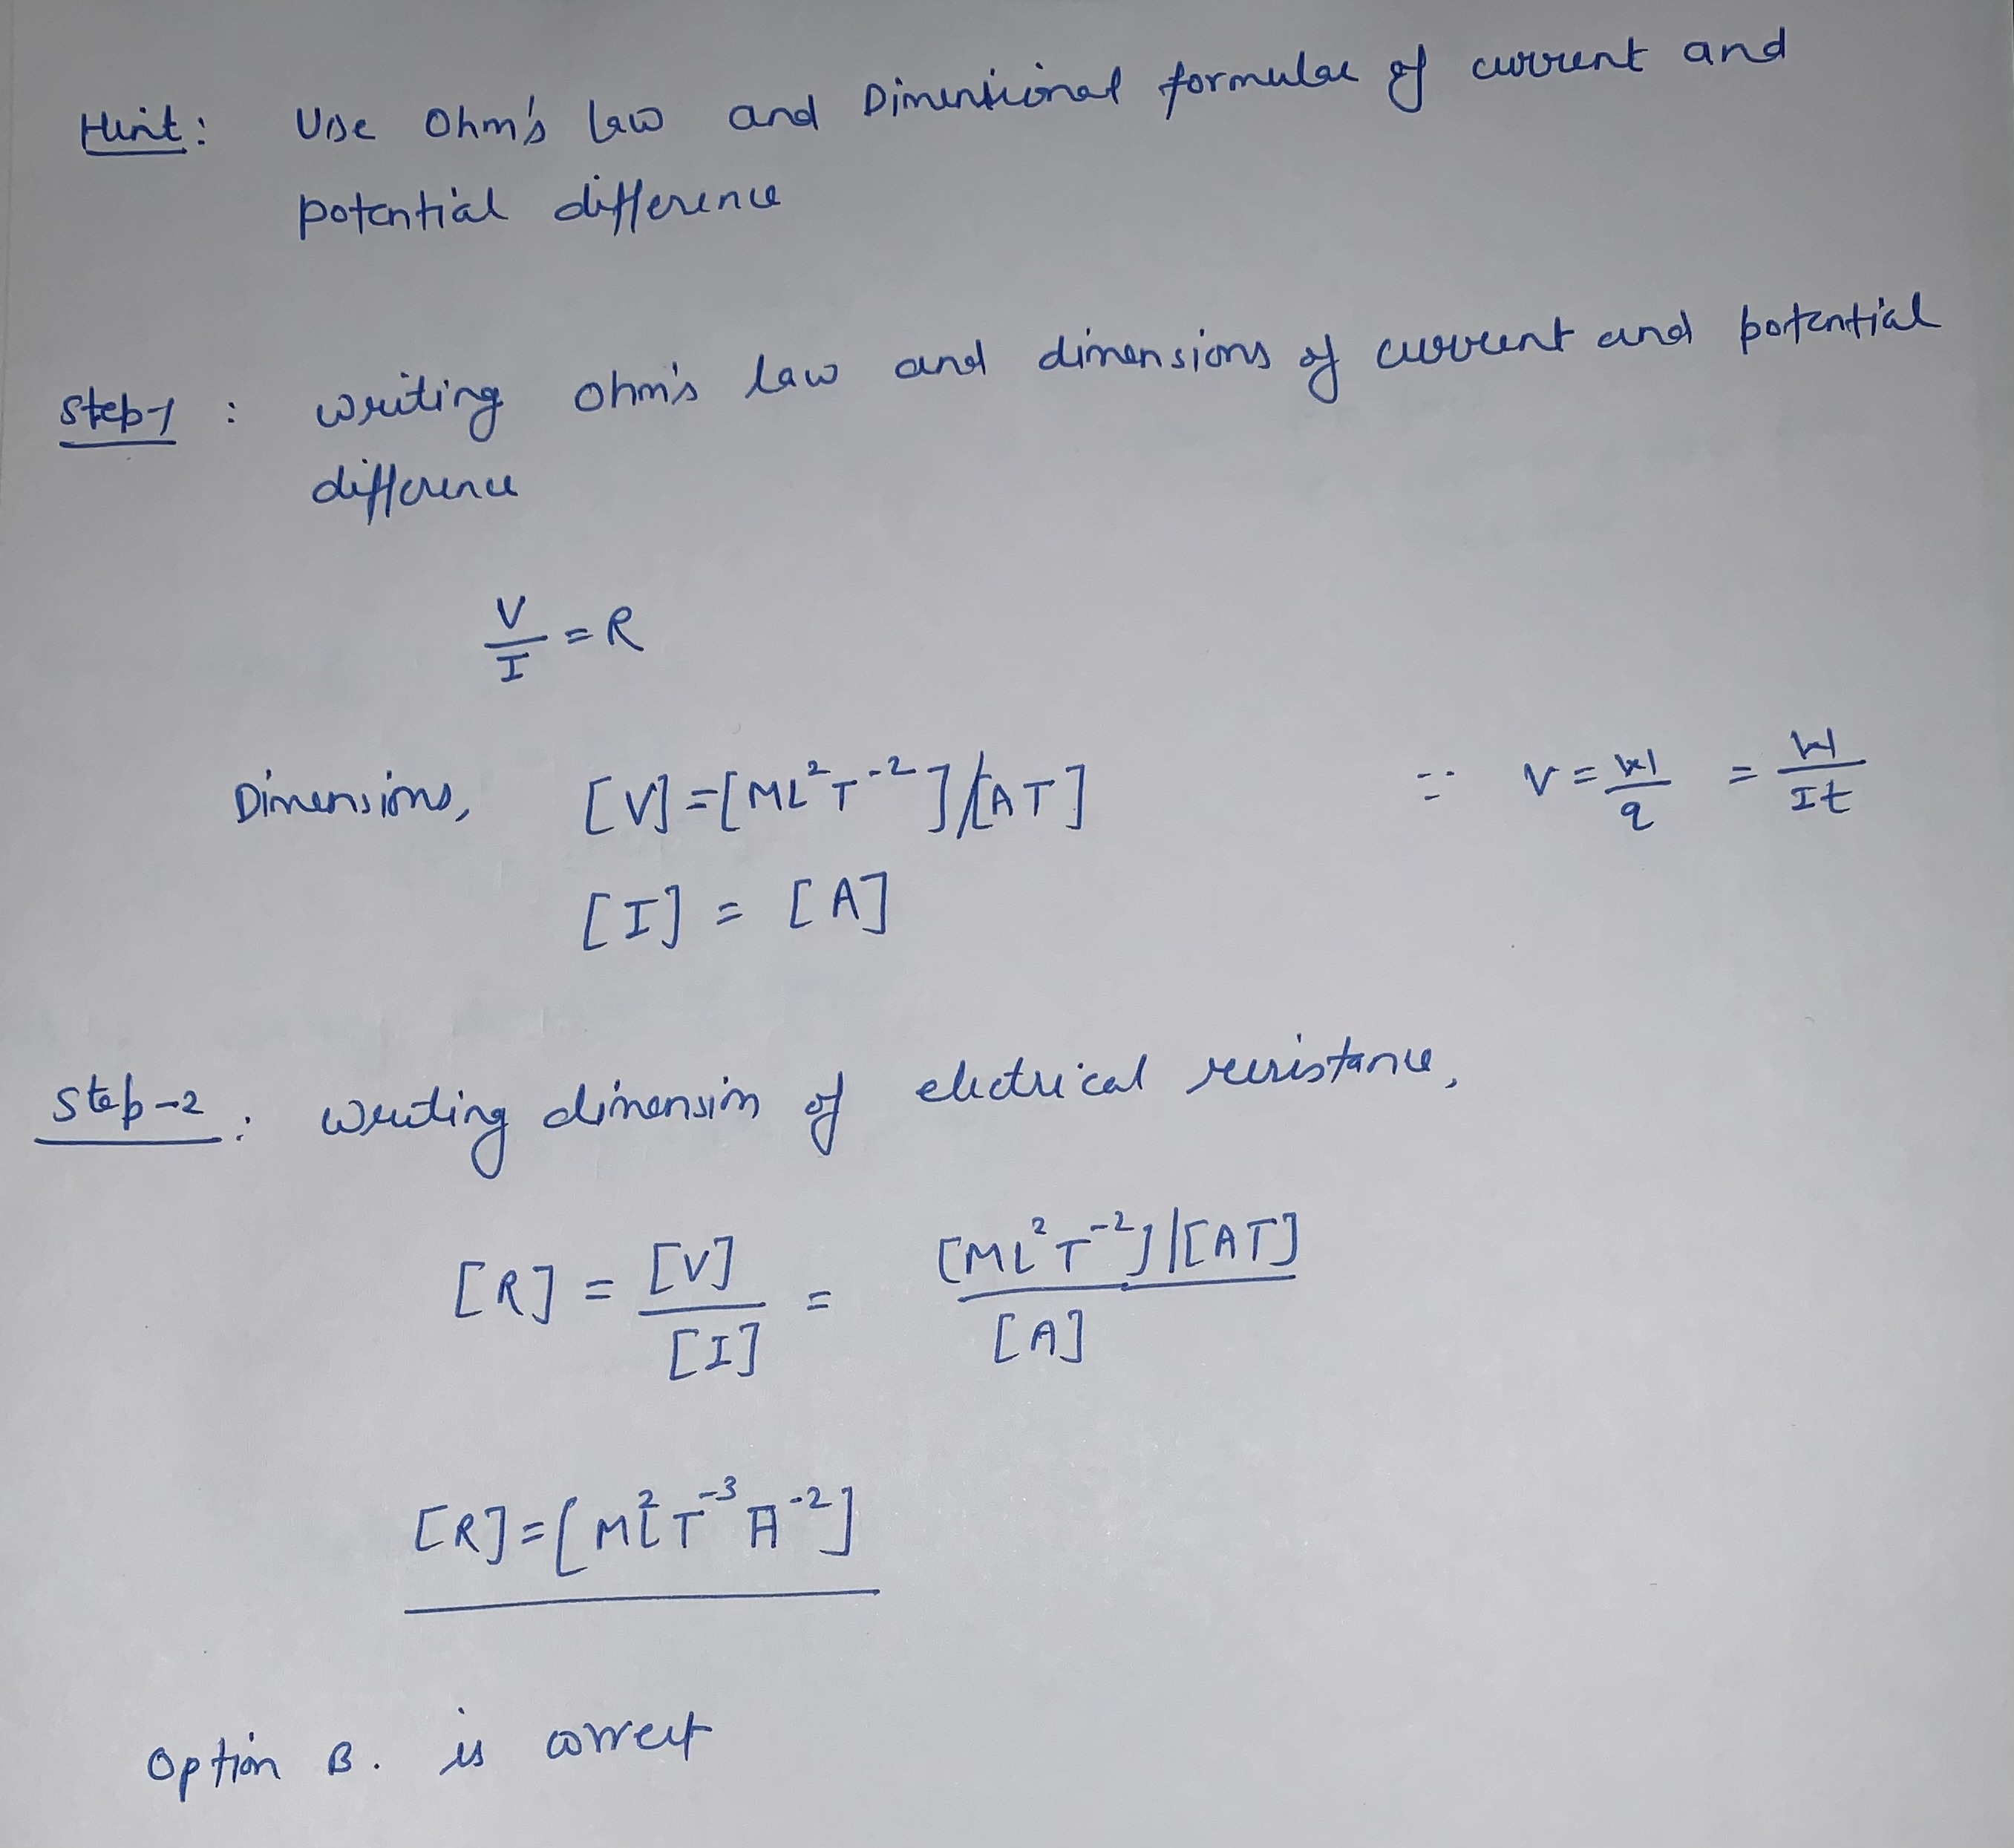 Hint: Use Ohm's law and Dimensional formulae of current and
potential difference
Step-1 : writing Ohm's law and dimensions of current and potential
difference
V/I = R
Dimensions, [V]=[ML²T⁻²]/[AT] ∵ V = W/q = W/It
[I] = [A]
Step-2 : writing dimension of electrical resistance,
[R] = [V]/[I] = [ML²T⁻²]/[AT] / [A]
[R]=[ML²T⁻³A⁻²]
Option B. is correct